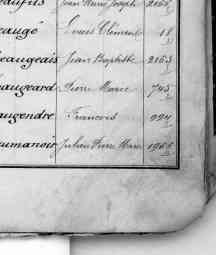 eaufils Jean Marie Joseph 2165
eaugé Louis Clément 18
eaugeais Jean Baptiste 2163
eaugeard Pierre Marie 745
augendre François 994
eumanoir Julien Pierre Marie 1965